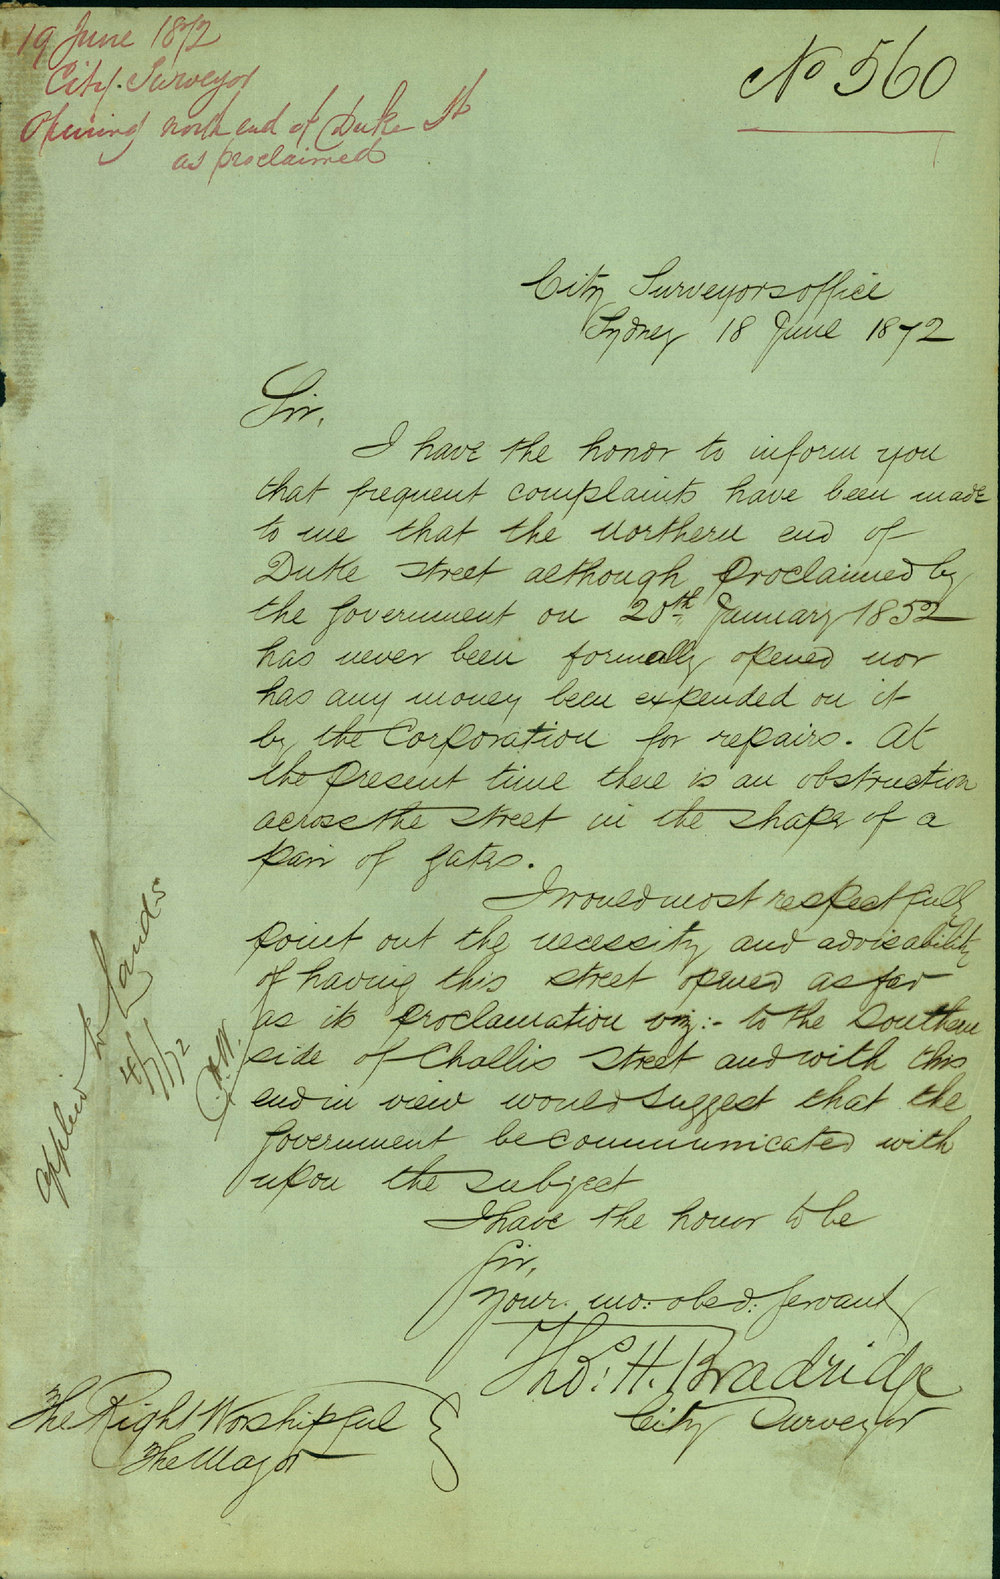 19 June 1872
City Surveyor
Opening north end of Duke St
as proclaimed
No 560
City Surveyors office
Sydney 18 June 1872
Sir,
I have the honor to inform you
that frequent complaints have been made
to me that the Northern end of
Duke street although proclaimed by
the Government on 20th January 1852
has never been formally opened nor
has any money been expended on it
by the Corporation for repairs. At
the present time there is an obstruction
across the street in the shape of a
pair of gates.
I would most respectfully
point out the necessity and advisability
of having this street opened as far
as its proclamation viz:- to the Southern
side of Challis street and with this
end in view would suggest that the
Government be communicated with
upon the subject
I have the honor to be
Sir,
Your mo: obed: servant
Thos: H. Bradridge
City Surveyor
The Right Worshipful
The Mayor
applied to Lands
4/7/72